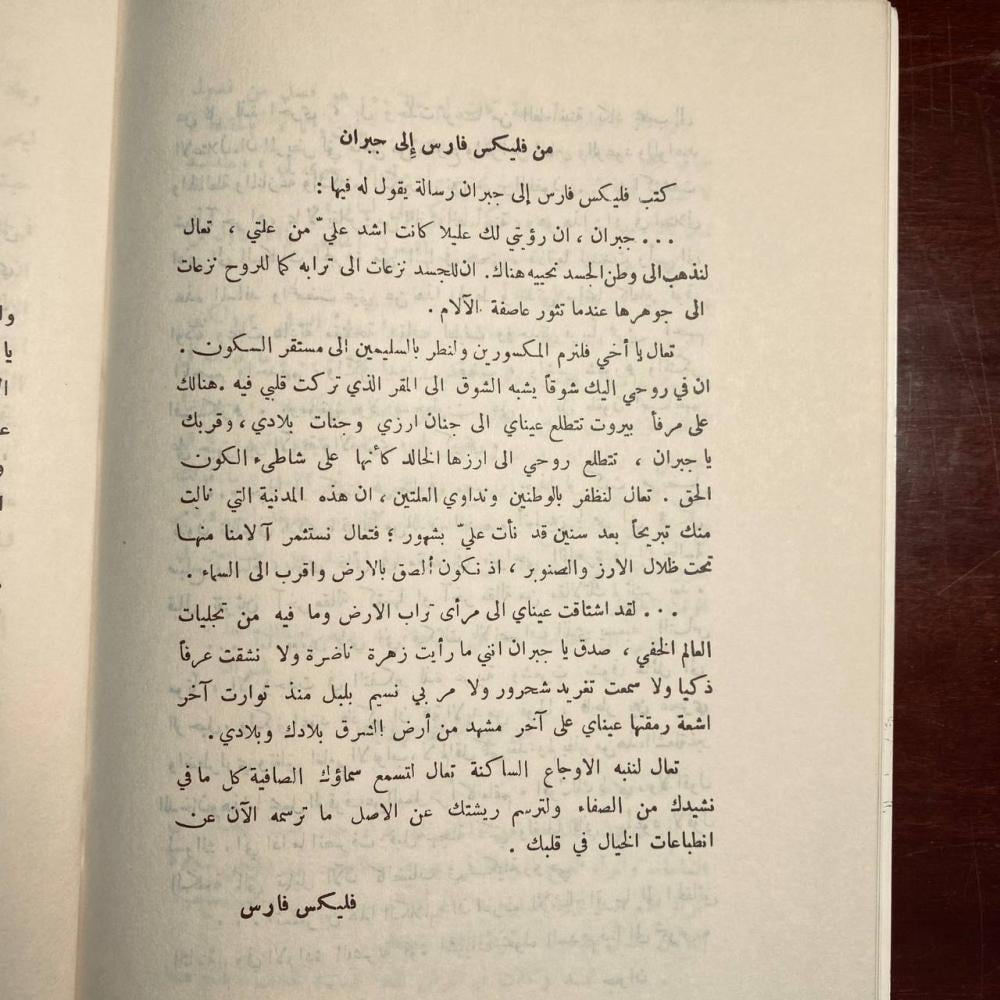 من فليكس فارس إلى جبران
كتب فليكس فارس إلى جبران رسالة يقول له فيها :
... جبران ، ان رؤيتي لك عليلا كانت اشد عليّ من علتي ، تعال
لنذهب الى وطن الجسد نحييه هناك. ان للجسد نزعات الى ترابه كما للروح نزعات
الى جوهرها عندما تثور عاصفة الآلام .
تعال يا أخي فلنرم المكسورين ولنطر بالسليمين الى مستقر السكون .
ان في روحي اليك شوقاً يشبه الشوق الى المقر الذي تركت قلبي فيه . هنالك
على مرفأ بيروت تتطلع عيناي الى جنان ارزي وجنات بلادي ، وقربك
يا جبران ، تتطلع روحي الى ارزها الخالد كأنها على شاطىء الكون
الحق . تعال لنظفر بالوطنين ونداوي العلتين ، ان هذه المدنية التي نالت
منك تبريحاً بعد سنين قد نأت عليّ بشهور ؛ فتعال نستثمر آلامنا منها
تحت ظلال الارز والصنوبر ، اذ نكون ألصق بالارض واقرب الى السماء .
... لقد اشتاقت عيناي الى مرأى تراب الارض وما فيه من تجليات
العالم الخفي ، صدق يا جبران انني ما رأيت زهرة ناضرة ولا نشقت عرفاً
ذكيا ولا سمعت تغريد شحرور ولا مر بي نسيم بليل منذ توارت آخر
اشعة رمقتها عيناي على آخر مشهد من أرض الشرق بلادك وبلادي .
تعال لننبه الاوجاع الساكنة تعال لتسمع سماؤك الصافية كل ما في
نشيدك من الصفاء ولترسم ريشتك عن الاصل ما ترسمه الآن عن
انطباعات الخيال في قلبك .
فليكس فارس